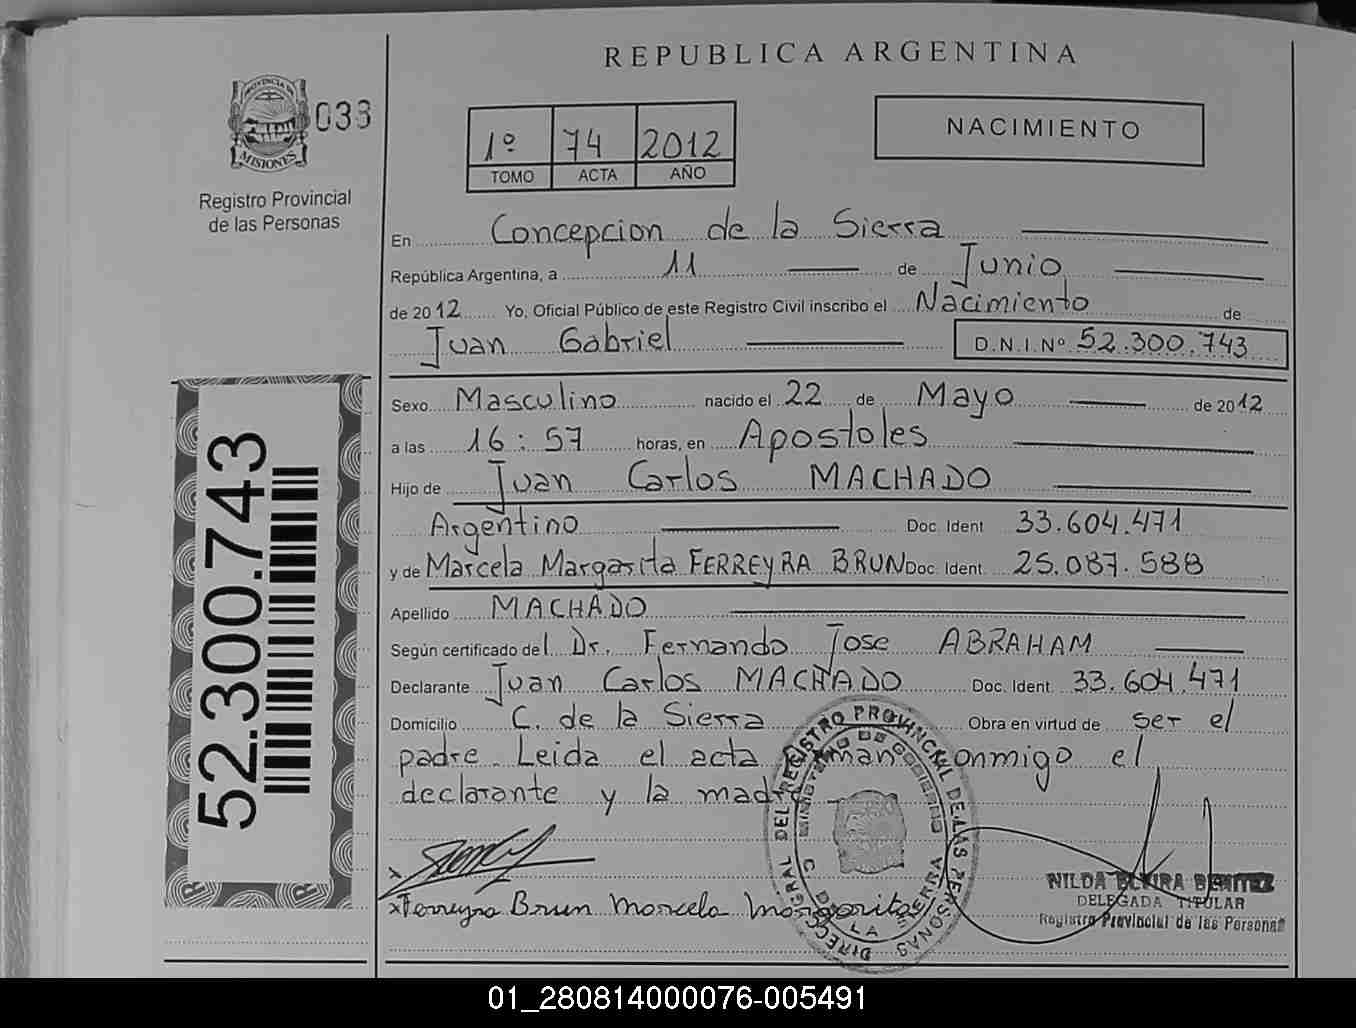 REPUBLICA ARGENTINA
PROVINCIA DE
MISIONES
033
Registro Provincial
de las Personas
1º 74 2012
TOMO ACTA AÑO
NACIMIENTO
En Concepcion de la Sierra
República Argentina, a 11 de Junio
de 2012 Yo, Oficial Público de este Registro Civil inscribo el Nacimiento de
Juan Gabriel D.N.I.Nº 52.300.743
Sexo Masculino nacido el 22 de Mayo de 2012
a las 16:57 horas, en Apostoles
Hijo de Juan Carlos MACHADO
Argentino Doc. Ident 33.604.471
y de Marcela Margarita FERREYRA BRUN Doc. Ident. 25.087.588
Apellido MACHADO
Según certificado del Dr. Fernando Jose ABRAHAM
Declarante Juan Carlos MACHADO Doc. Ident 33.604.471
Domicilio C. de la Sierra Obra en virtud de ser el
padre. Leida el acta firman conmigo el
declarante y la madre.
52.300.743
x Ferreyra Brun Marcela Margarita
DIRECC GRAL DEL REGISTRO PROVINCIAL DE LAS PERSONAS
MINISTERIO DE GOBIERNO
C DE LA SIERRA
NILDA ELVIRA BENITEZ
DELEGADA TITULAR
Registro Provincial de las Personas
01_280814000076-005491